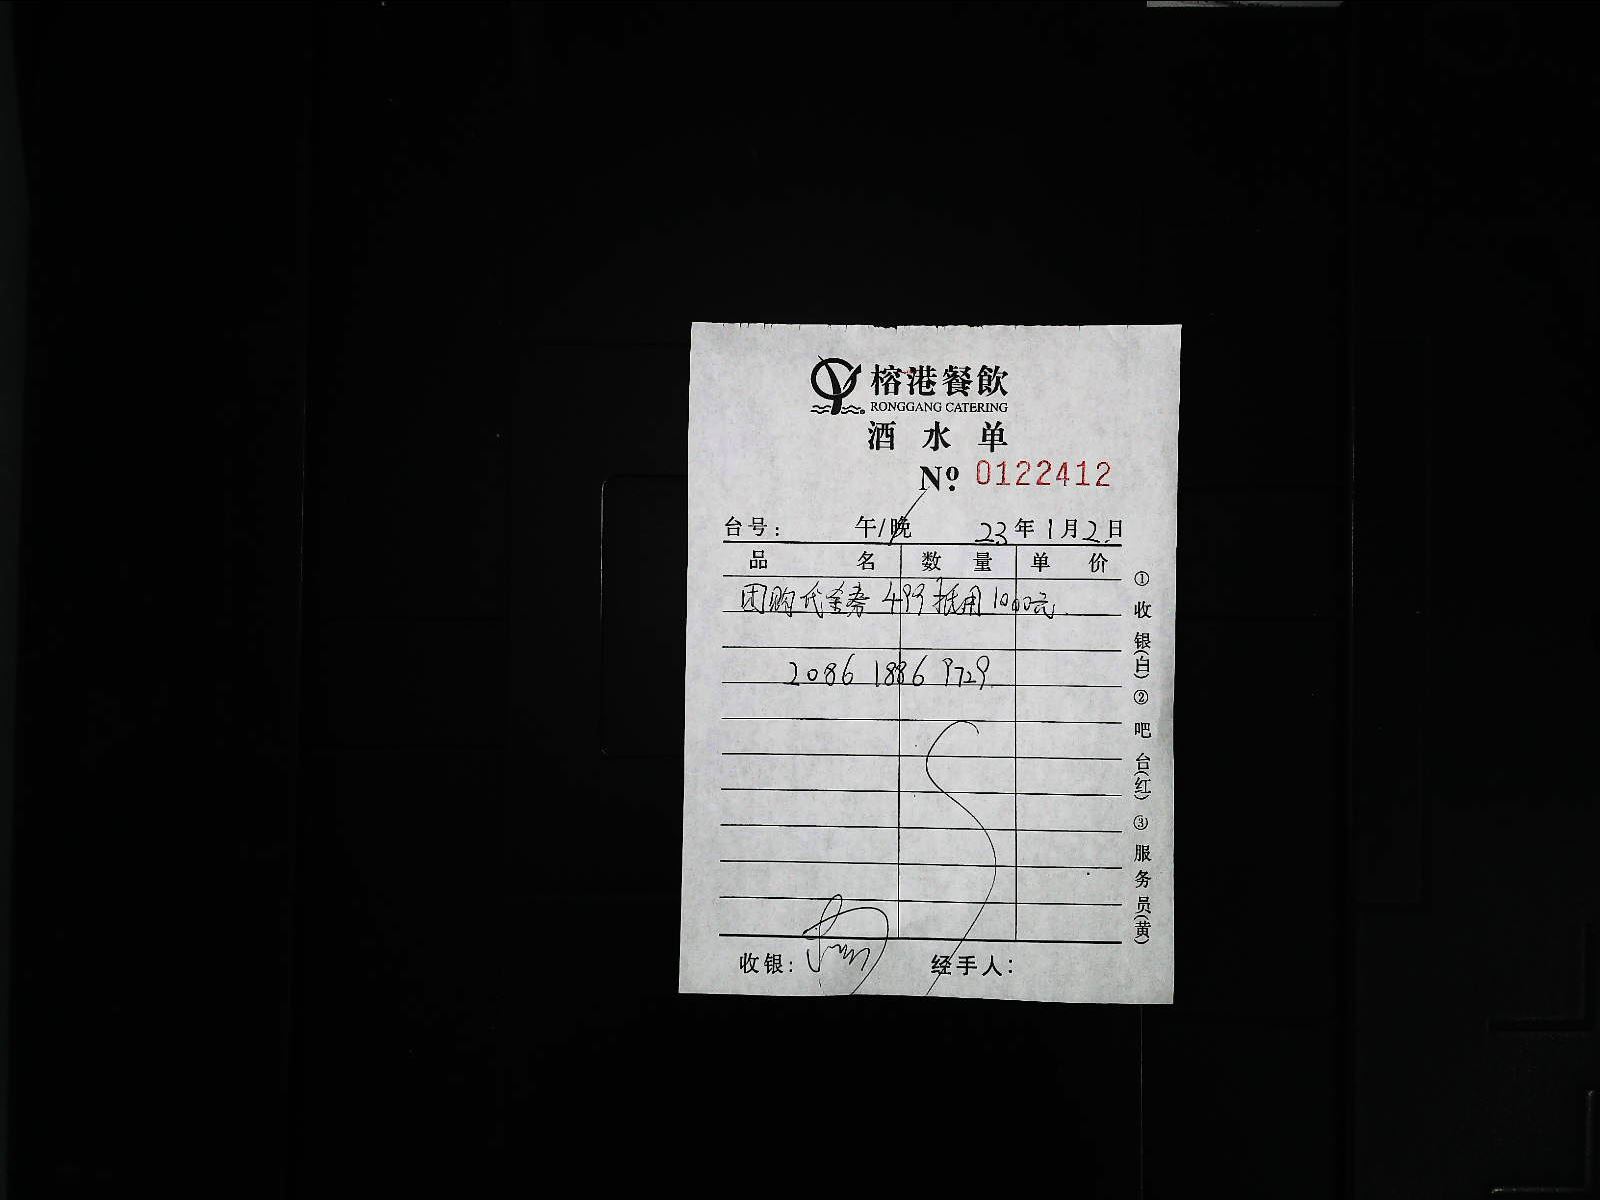 榕港餐飲
RONGGANG CATERING
酒水单
№ 0122412
台号: 午/晚 23年1月2日
品名 数量 单价
团购代金券 499抵用1000元.
2086 1886 9729
收银: 经手人:
①收银(白)②吧台(红)③服务员(黄)